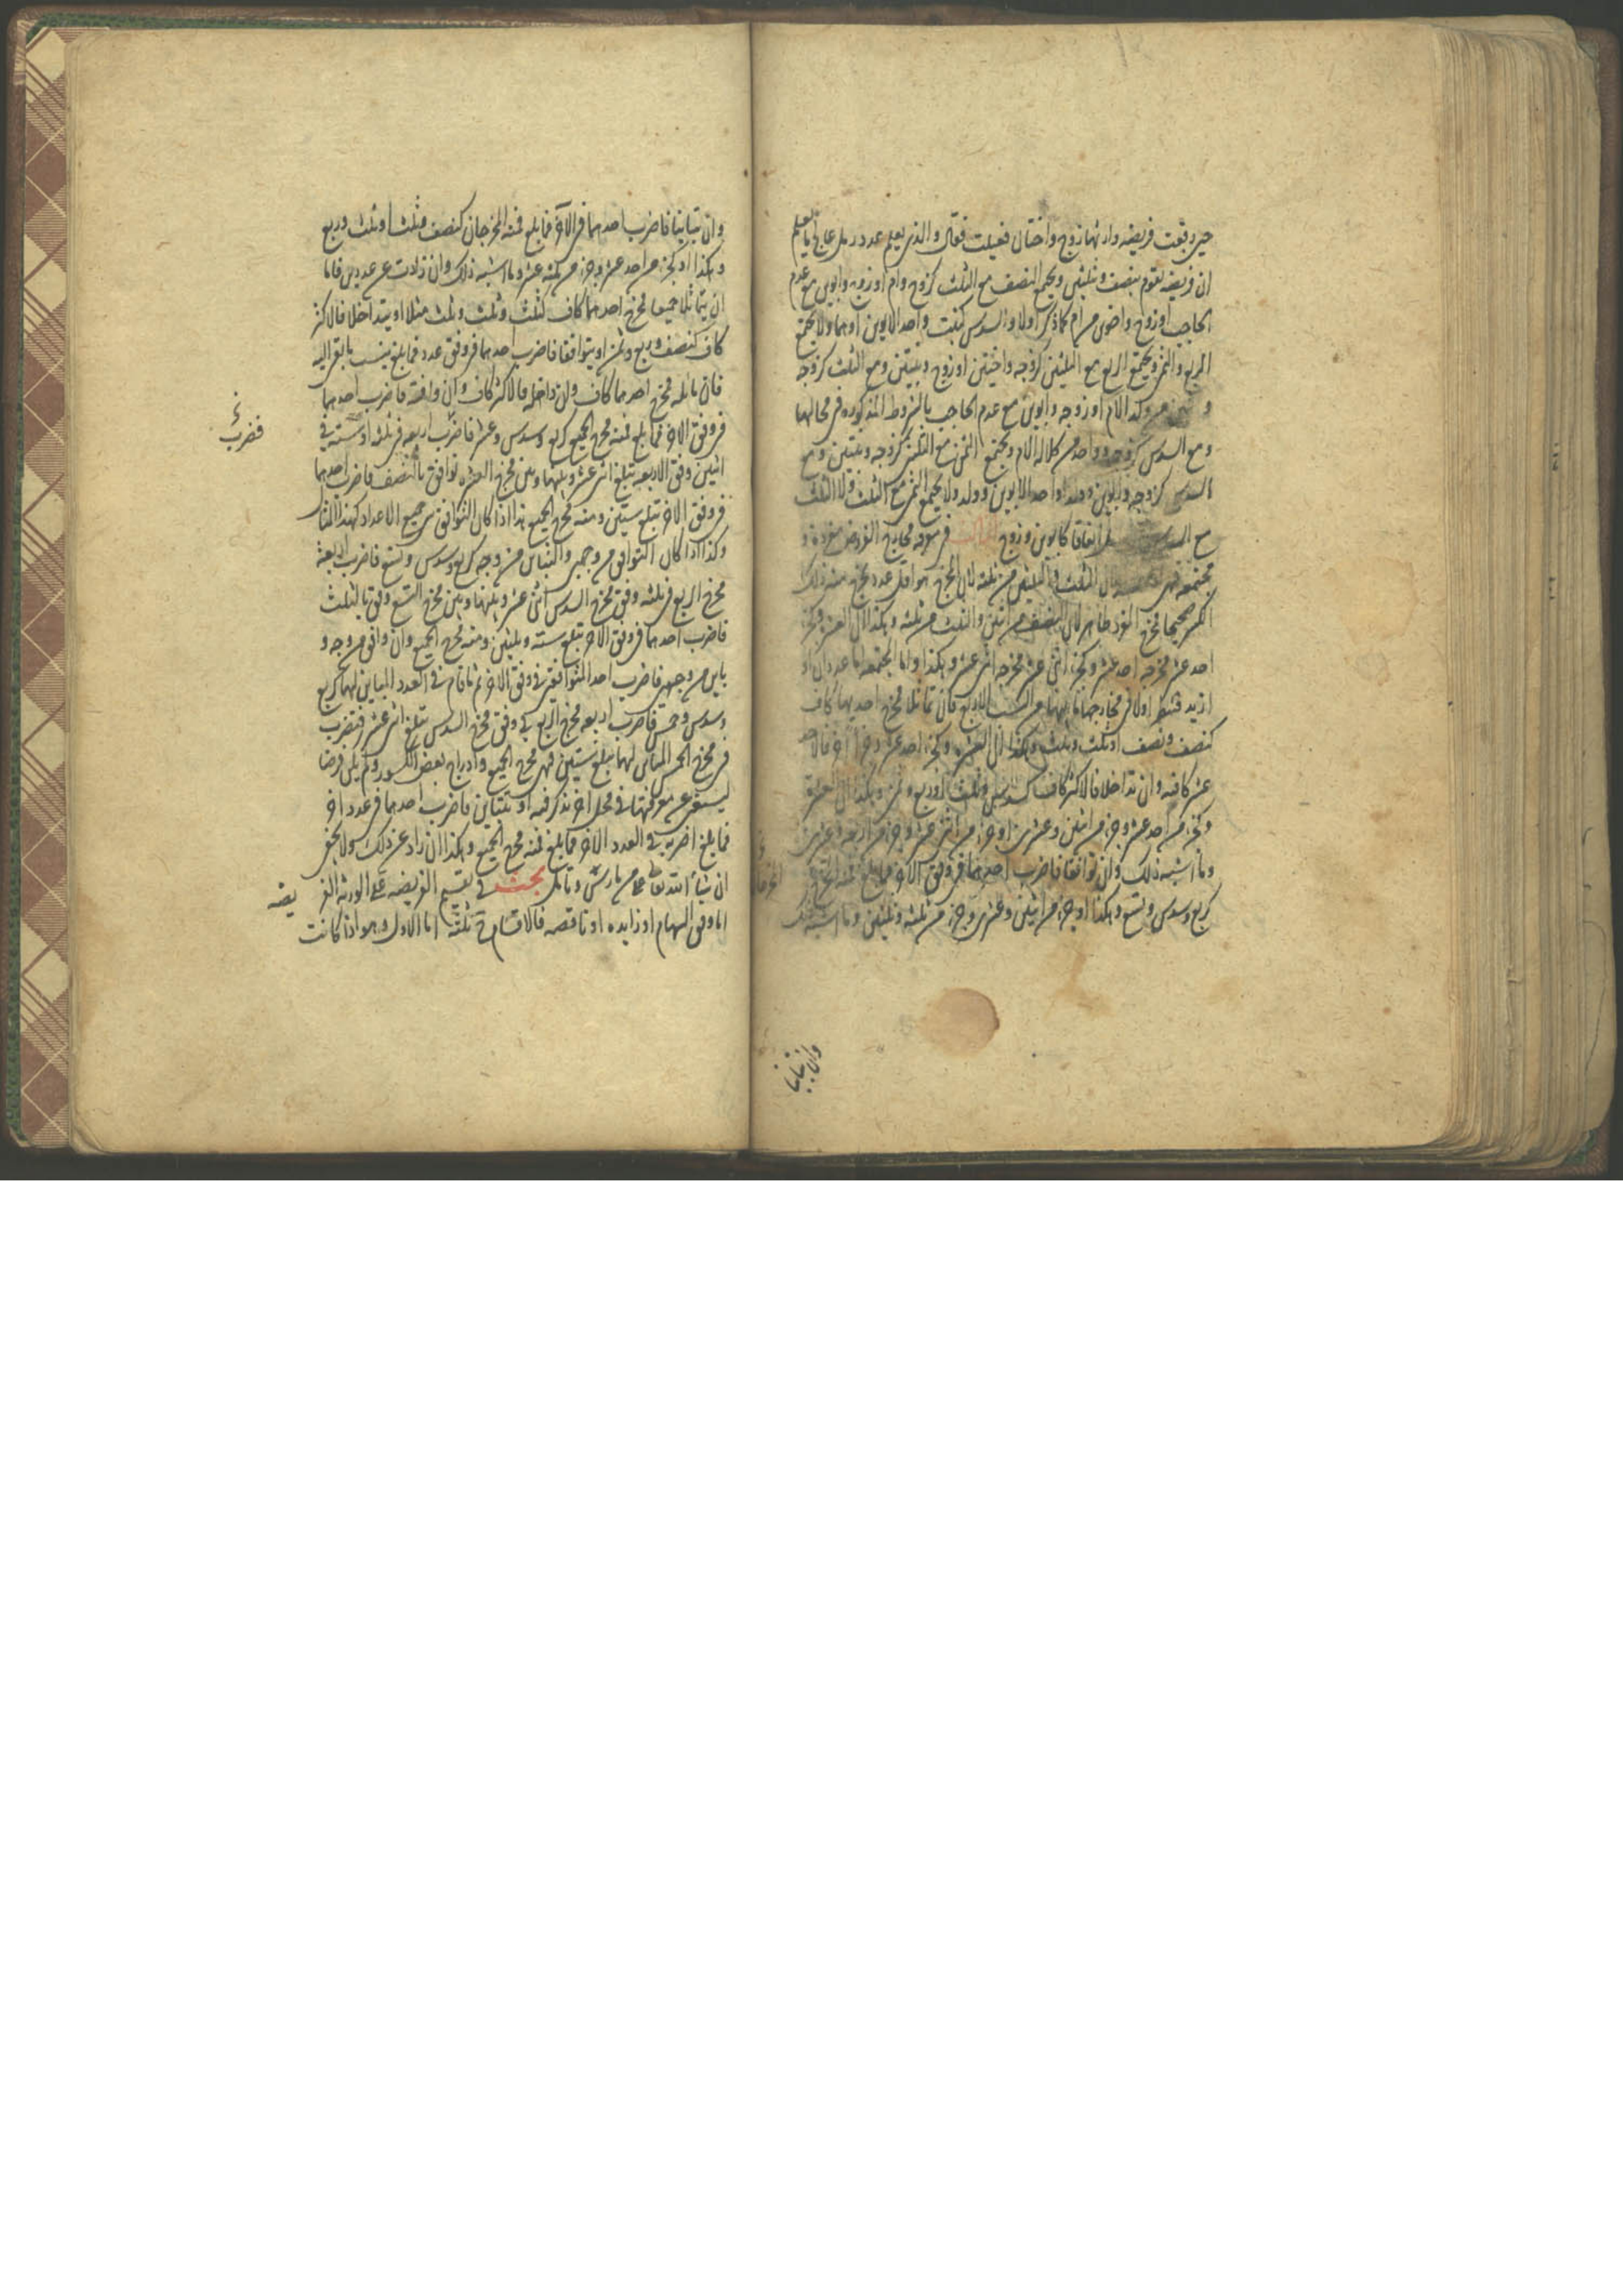 حين وقعت فريضه وارثها زوج واختان فعيلت فقال والذي يعلم عدد رمل عالج ما يعلم
ان فريضه تقوم بنصف وثلثين ويجمع النصف مع الثلث كزوج وام او زوج وابوين مع عدم
الحاجب او زوج واخوين من ام كما ذكر اولا والسدس كبنت واحد الابوين او هما ولا يجتمع
الربع والثمن ويجتمع الربع مع الثلثين كزوجه واختين او زوج وبنتين ومع الثلث كزوجه
ولد الام او زوجه وابوين مع عدم الحاجب بالشروط المذكوره في محالها
ومع السدس كزوجه وواحد من كلاله الام ويجتمع الثمن مع الثلثين كزوجه وبنتين ومع
السدس كزوجه وابوين وولد او احد الابوين وولد ولا يجتمع الثمن مع الثلث ولا الثلث
مع اتفاقا كابوين وزوج في معرفه مخارج الفروض مفرده و
مجتمعه فهي الثلث والثلثين من ثلثه لان المخرج هو اقل عدد يخرج منه ذلك
الكسر صحيحا فمخرج المفرد ظاهر لان النصف من اثنين والثلث من ثلثه وهكذا الى العشر وكجزء
احد عشر مخرجه احد عشر وكجزء اثنى عشر مخرجه اثنى عشر وهكذا واما المجتمعه اما عددان او
ازيد فتنظر اولا في مخارجها ما بينهما من النسب الاربع فان تماثلا فمخرج احديهما كاف
كنصف ونصف او ثلث وثلث وهكذا الى العشر وكجزء احد عشر وجزء اخر فالاحد
عشر كافيه وان تداخلا فالاكثر كاف كسدس وثلث او ربع وثمن وهكذا الى العشر
وكجزء من احد عشر وجزء من اثنين وعشرين او جزء من اثنى عشر وجزء من اربعه وعشرين
وما اشبه ذلك وان توافقا فاضرب احدهما في وفق الاخر فما بلغ فمنه المخرجان
كربع وسدس وتسع وهكذا او جزء من اثنين وعشرين وجزء من ثلثه وثلثين وما اشبه ذلك
وان تباينا
وان تباينا فاضرب احدهما في الاخر فما بلغ فمنه المخرجان كنصف وثلث او ثلث وربع
وهكذا او كجزء من احد عشر وجزء من ثلثه عشر وما اشبه ذلك وان زادت عن عددين فاما
ان يتماثلا جميعا فمخرج احدهما كاف كثلث وثلث وثلث مثلا او يتداخلا فالاكثر
كاف كنصف وربع وثمن او يتوافقا فاضرب احدهما في وفق عدد فما بلغ ينسب بالبقر اليه
فان ماثله فمخرج احدهما كاف وان داخله فالاكثر كاف وان وافقه فاضرب احدهما
في وفق الاخر فما بلغ فمنه مخرج الجميع كربع وسدس وعشر فاضرب اربعه في ثلثه او سته في
فضرب
اثنين وفق الاربعه تبلغ اثنى عشر وبينها وبين مخرج العشر توافق بالنصف فاضرب احدهما
في وفق الاخر تبلغ ستين ومنه مخرج الجميع هذا اذا كان التوافق من جميع الاعداد كهذا المثال
وكذا اذا كان التوافق من وجهين والتباين من وجه كربع وسدس وتسع فاضرب اربعة
مخرج الربع في ثلثه وفق مخرج السدس اثنى عشر وبينها وبين مخرج التسع وفق بالثلث
فاضرب احدهما في وفق الاخر تبلغ سته وثلثين ومنه مخرج الجميع وان وافق من وجه و
باين من وجهين فاضرب احد المتوافقين في وفق الاخر ثم ما قام في العدد المباين لهما كربع
وسدس وخمس فاضرب اربعه مخرج الربع في وفق مخرج السدس تبلغ اثنى عشر فتضرب
في مخرج الخمس المباين لهما تبلغ ستين فهي مخرج الجميع وادراج بعض الكسور ولم يكن فرضا
ليستغنى عن معرفتها في محل اخر نذكر فيه او تتباين فاضرب احدهما في عدد اخر
فما بلغ اضربه في العدد الاخر فما بلغ فمنه مخرج الجميع وهكذا ان زاد عن ذلك ولا يخفى
ان شاء الله تعالى على من مارس وتامل بحث في تقسيم الفريضه على الورثه الفر
يضه
اما وفق السهام او زايده او ناقصه فالاقسام ح ثلثة اما الاول وهو اذا كانت